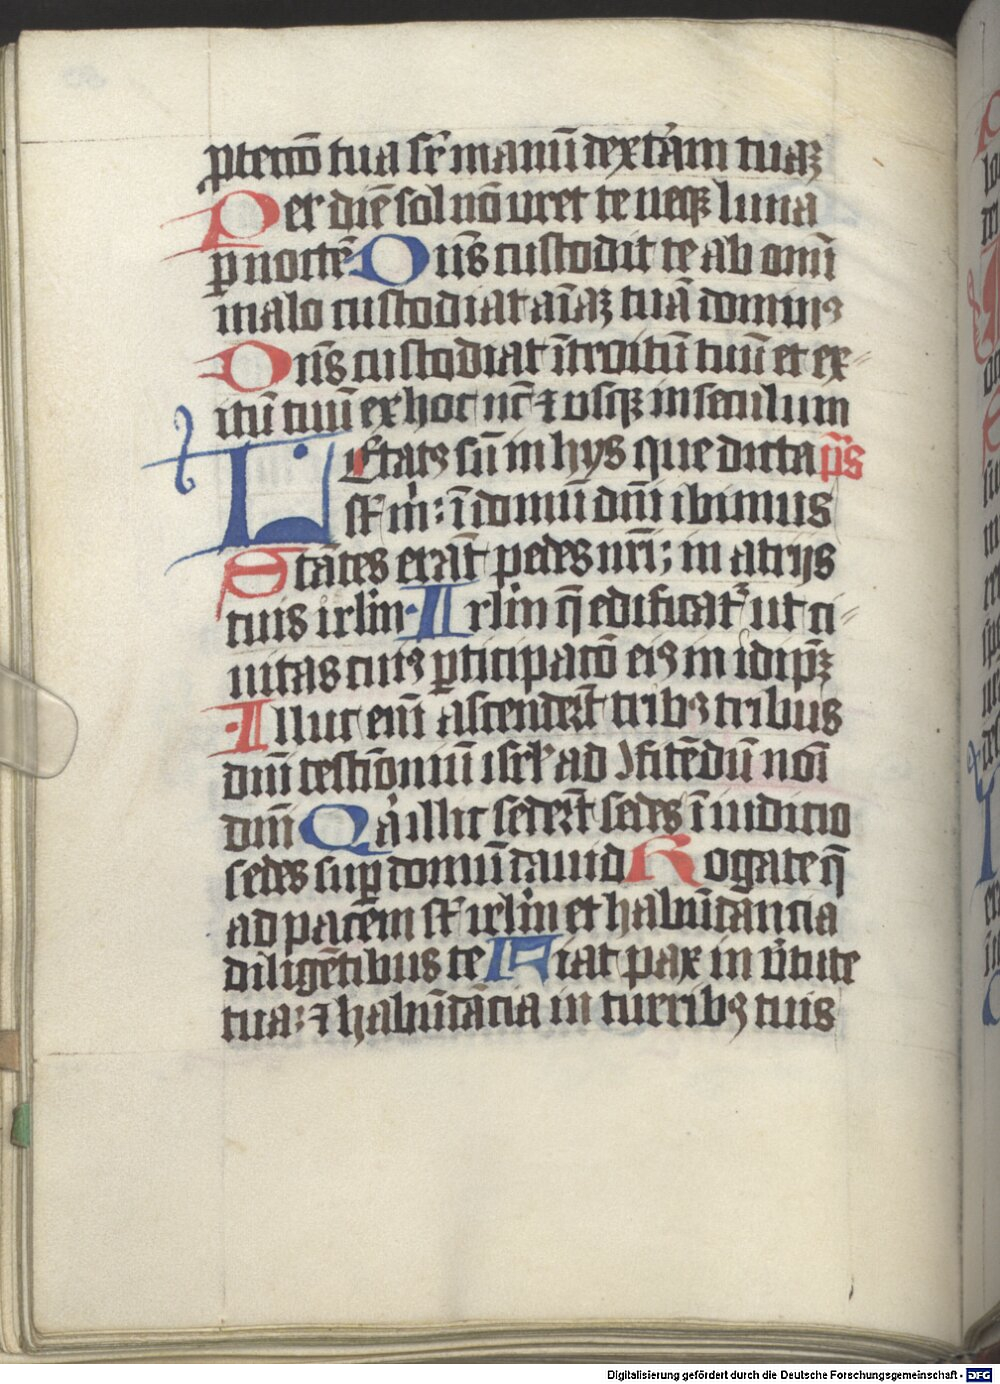 ꝓteccō tua sꝑ manū dextᷓam tuaꝫ
Per diē sol nō uret te neqꝫ luna
ꝑ noctē Dn̄s custodit te ab om̄i
malo custodiat aīaꝫ tuā dominꝰ
Dn̄s custodiat ītroitū tuū et ex⸗
itū tuū ex hoc nc̄ ⁊ usqꝫ in seculum
Letatꝰ sū in hys que dicta p̄s
st̄ m̍: ī domū dn̄i ibimus
Stātes erāt pedes nr̄i; in atrijs
tuis irl̄m· Irl̄m q̄ edificat᷑ ut ci⸗
uitas cuiꝰ ꝑticipatō eiꝰ in idip̄ꝫ
Illuc eni̅ ascender̄t tribꝰ tribus
dn̄i testīoniū isrl̄ ad ꝯfitēdū noī
dn̄i Qᷓ illic seder̄t sedes ī iudicio
sedes suꝑ domū dauid Rogate q̄
ad pacem st̄ irl̄m et habūdancia
diligētibus te Fiat pax in v̍tute
tua: ⁊ habūdācia in turribꝰ tuis
Digitalisierung gefördert durch die Deutsche Forschungsgemeinschaft - DFG